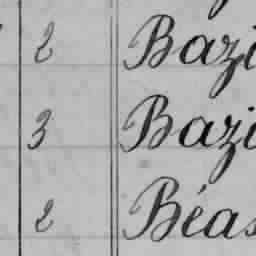 2 Bazi
3 Bazi
2 Béas